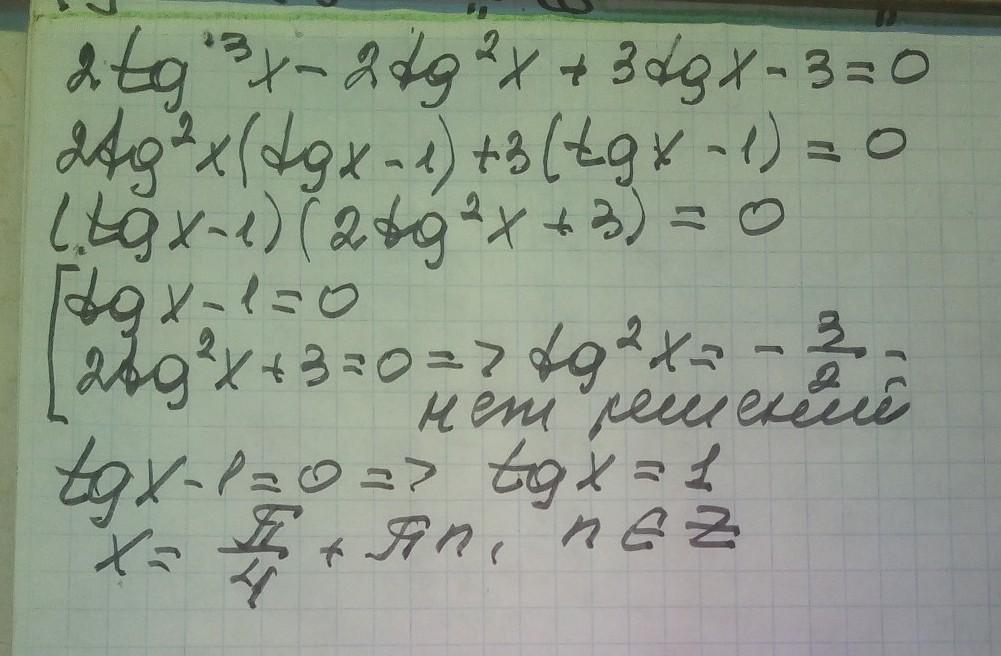 2tg³x - 2tg²x + 3tgx - 3 = 0
2tg²x(tgx - 1) + 3(tgx - 1) = 0
(tgx - 1)(2tg²x + 3) = 0
[tgx - 1 = 0
2tg²x + 3 = 0 => tg²x = - 3/2 -
нет решений
tgx - 1 = 0 => tgx = 1
x = π/4 + πn, n ∈ Z